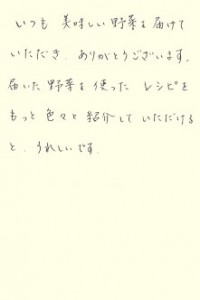 いつも 美味しい野菜を届けて
いただき、ありがとうございます。
届いた野菜を使った レシピを
もっと色々と紹介して いただける
と、うれしいです。